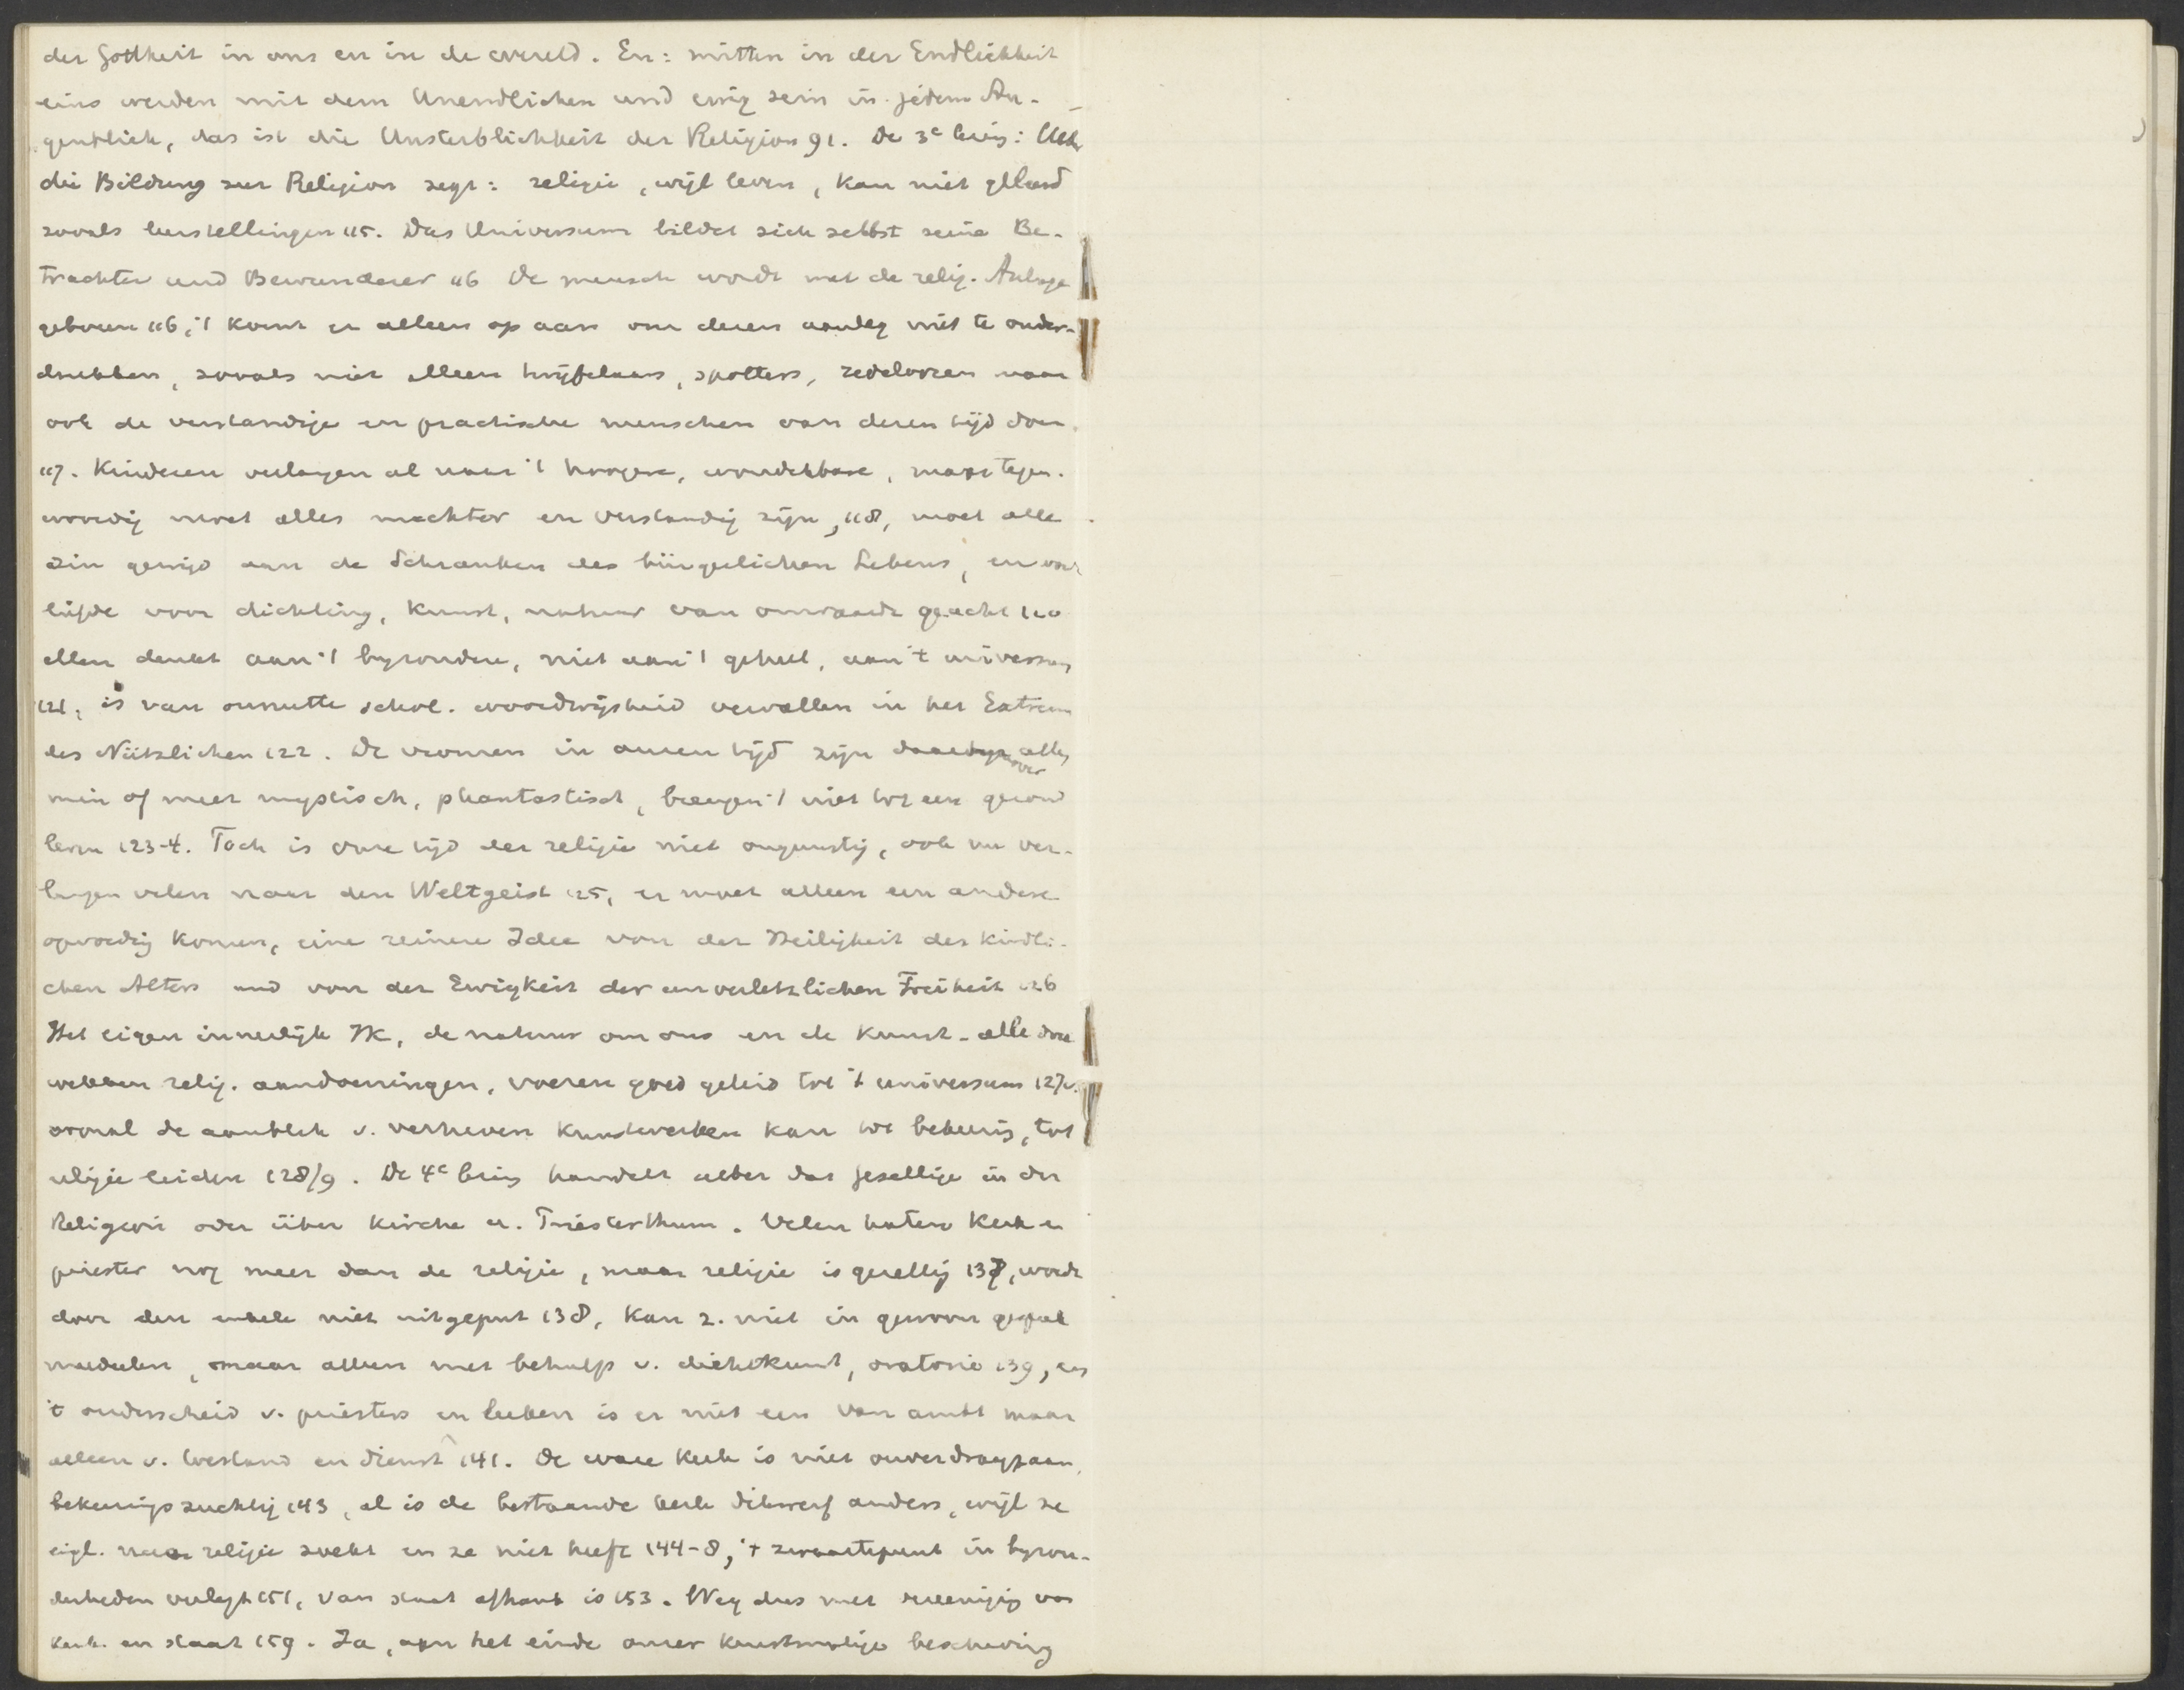 der Gottheit in ons en in de wereld. En: mitten in der Endlichkeit
eins werden mit dem Unendlichen und ewig sein in jedem Au-
genblick, das ist die Unsterblichkeit der Religion 91. De 3e : Ueber
die Bildung zur Religion zegt: religie, wijl leven, kan niet geleerd
zooals leerstellingen 115. Das Universum bildet sich selbst seine Be-
trachter und Bewunderer 116 De mensch wordt met de relig. Anlage
geboren 116, 't komt er alleen op aan om dezen aanleg niet te onder-
drukken, zooals niet alleen twijfelaars, spotters, zedeloozen maar
ook de verstandige en practische menschen van dezen tijd doen
117. Kinderen verlangen al naar 't hoogere, wonderbare, maar tegen-
woordig moet alles nuchter en verstandig zijn, 118, moet alle
zin gewijd aan de Schranken des bürgerlichen Lebens, en
liefde voor dichting, kunst, natuur van onwaarde geacht 120
allen denkt aan 't byzondere, niet aan 't geheel, aan 't universum
121, is van onnutte schol. woordwijsheid vervallen in het Extrem
des Nützlichen 122. De vromen in onzen tijd zijn allen
min of meer mystisch, phantastisch, brengen 't niet tot een gezond
leven 123-4. Toch is onze tijd der religie niet ongunstig, ook nu ver-
langen velen naar den Weltgeist 125, er moet alleen een andere
opvoedig komen, eine reinere Idee von der Heiligkeit des kindli-
chen Alters und von der Ewigkeit der unverletzlichen Freiheit 126
Het eigen innerlijk Ik, de natuur om ons en de kunst - alle drie
wekken relig. aandoeningen, voeren goed geleid tot 't universum 127v.
vooral de aanblik v. verheven kunstwerken kan tot bekeerig, tot
religie leiden 128/9. De 4e handelt ueber das Gesellige in der
Religion oder über Kirche u. Priesterthum. Velen haten kerk en
priester nog meer dan de religie, maar religie is gezellig 137, wordt
door den enkele niet uitgeput 138, kan z. niet in gewoon gesprek
mededeelen, maar alleen met behulp v. dichtkunst, oratorie 139, en
't onderscheid v. priesters en leeken is er niet een van ambt maar
alleen v. toestand en dienst 141. De ware kerk is niet onverdraagzaam,
bekeeringszuchtig 143, al is de bestaande kerk dikwerf anders, wijl ze
eigl. naar religie zoekt en ze niet heeft 144-8, 't zwaartepunt in byzon-
derheden verlegt 151, van staat afhank is 153. Weg dus met vereenigig van
kerk en staat 159. Ja, aan het einde onzer kunstmatige beschaving